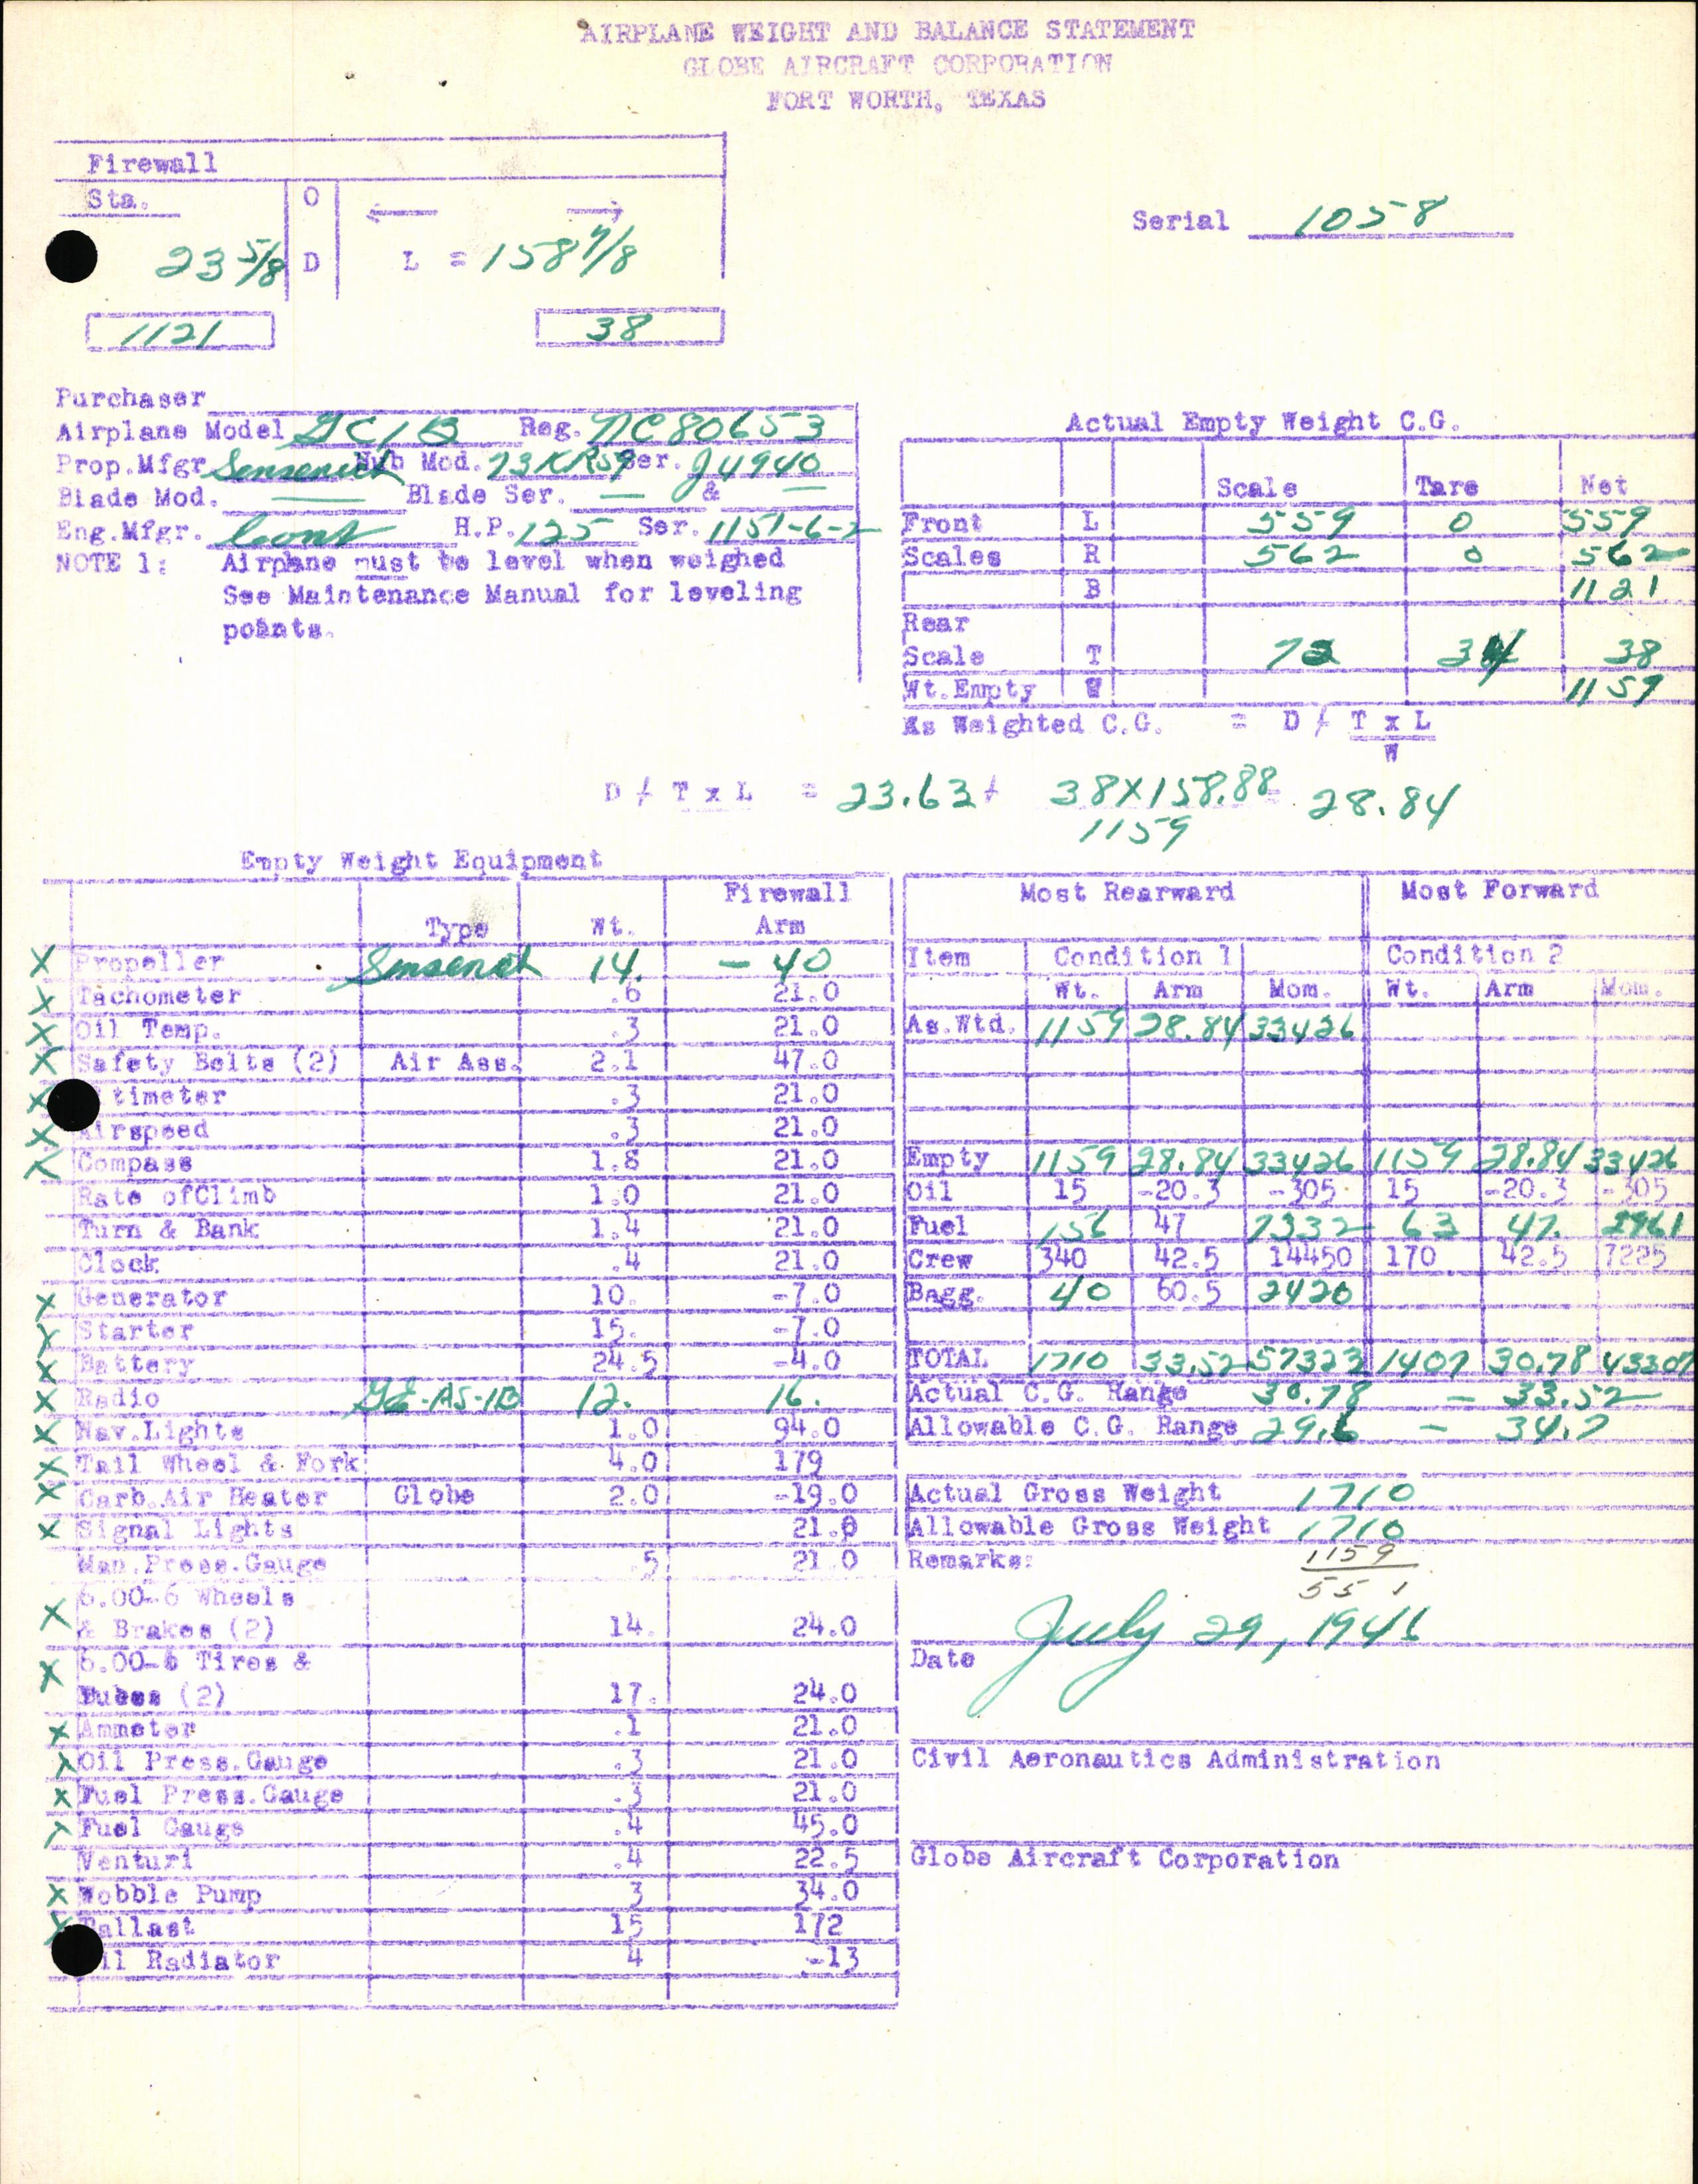 AIRPLANE WEIGHT AND BALANCE STATEMENT
GLOBE AIRCRAFT CORPORATION
FORT WORTH, TEXAS
Firewall
Sta. O
23 5/8 D L = 158 7/8
1121 38
Serial 1058
Purchaser
Airplane Model GC1B Reg. NC80653
Prop.Mfgr Sensenich Hub Mod. 73KR59 Ser. J4940
Blade Mod. — Blade Ser. — & —
Eng.Mfgr. Cont H.P. 125 Ser. 1151-6-2
NOTE 1: Airplane must be level when weighed
See Maintenance Manual for leveling
points.
Actual Empty Weight C.G.
Scale Tare Net
Front L 559 0 559
Scales R 562 0 562
B 1121
Rear
Scale T 72 34 38
Wt.Empty W 1159
As Weighted C.G. = D / T x L
W
D / T x L = 23.63 / 38X158.88 = 28.84
1159
Empty Weight Equipment
Type Wt. Firewall Arm
X Propeller Sensenich 14. -40
X Tachometer .6 21.0
X Oil Temp. .3 21.0
X Safety Belts (2) Air Ass. 2.1 47.0
X timeter .3 21.0
X Airspeed .3 21.0
X Compass 1.8 21.0
Rate ofClimb 1.0 21.0
Turn & Bank 1.4 21.0
Clock .4 21.0
X Generator 10. -7.0
X Starter 15. -7.0
X Battery 24.5 -4.0
X Radio GE-AS-1B 12. 16.
X Nav.Lights 1.0 94.0
X Tail Wheel & Fork 4.0 179
X Carb.Air Heater Globe 2.0 -19.0
X Signal Lights 21.0
Man.Press.Gauge .5 21.0
6.00-6 Wheels
X & Brakes (2) 14. 24.0
X 6.00-6 Tires &
Tubes (2) 17. 24.0
X Ammeter .1 21.0
X Oil Press.Gauge .3 21.0
X Fuel Press.Gauge .3 21.0
X Fuel Gauge .4 45.0
Venturi .4 22.5
X Wobble Pump 3 34.0
X Ballast 15 172
il Radiator 4 -13
Most Rearward Most Forward
Item Condition 1 Condition 2
Wt. Arm Mom. Wt. Arm Mom.
As.Wtd. 1159 28.84 33426
Empty 1159 28.84 33426 1159 28.84 33426
Oil 15 -20.3 -305 15 -20.3 -305
Fuel 156 47 7332 63 47. 2961
Crew 340 42.5 14450 170 42.5 7225
Bagg. 40 60.5 2420
TOTAL 1710 33.52 57323 1407 30.78 43307
Actual C.G. Range 30.78 - 33.52
Allowable C.G. Range 29.6 - 34.7
Actual Gross Weight 1710
Allowable Gross Weight 1710
Remarks: 1159
551
July 29, 1946
Date
Civil Aeronautics Administration
Globe Aircraft Corporation